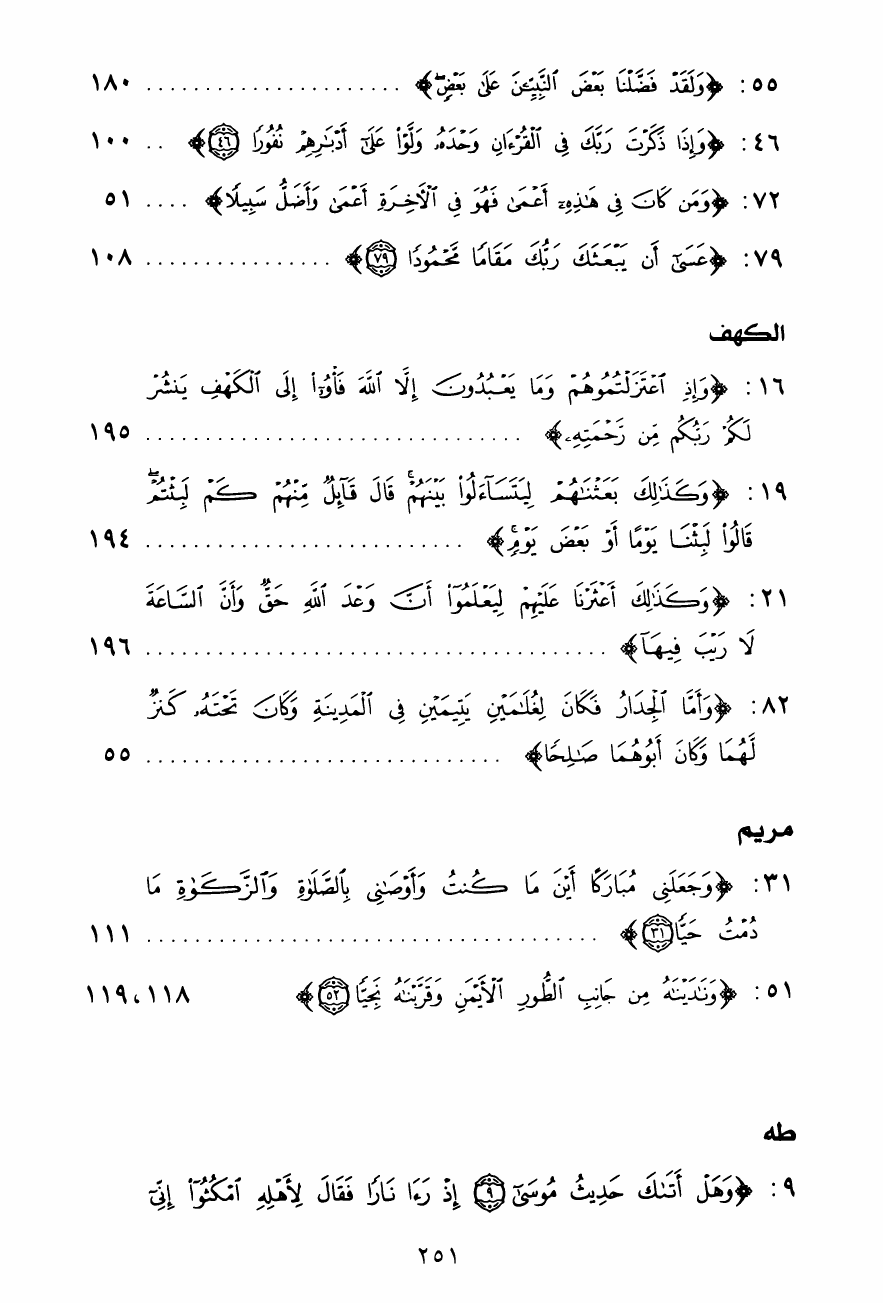 ٥٥: ﴿وَلَقَدْ فَضَّلْنَا بَعْضَ ٱلنَّبِيِّـۧنَ عَلَىٰ بَعْضٍۖ﴾ ..................... ١٨٠
٤٦: ﴿وَإِذَا ذَكَرْتَ رَبَّكَ فِى ٱلْقُرْءَانِ وَحْدَهُۥ وَلَّوْا۟ عَلَىٰٓ أَدْبَـٰرِهِمْ نُفُورًا ٤٦﴾ .. ١٠٠
٧٢: ﴿وَمَن كَانَ فِى هَـٰذِهِۦٓ أَعْمَىٰ فَهُوَ فِى ٱلْـَٔاخِرَةِ أَعْمَىٰ وَأَضَلُّ سَبِيلًا﴾ .... ٥١
٧٩: ﴿عَسَىٰٓ أَن يَبْعَثَكَ رَبُّكَ مَقَامًا مَّحْمُودًا ٧٩﴾ ................ ١٠٨
الكهف
١٦: ﴿وَإِذِ ٱعْتَزَلْتُمُوهُمْ وَمَا يَعْبُدُونَ إِلَّا ٱللَّهَ فَأْوُۥٓا۟ إِلَى ٱلْكَهْفِ يَنشُرْ
لَكُمْ رَبُّكُم مِّن رَّحْمَتِهِۦ﴾ ................................ ١٩٥
١٩: ﴿وَكَذَٰلِكَ بَعَثْنَـٰهُمْ لِيَتَسَآءَلُوا۟ بَيْنَهُمْۚ قَالَ قَآئِلٌ مِّنْهُمْ كَمْ لَبِثْتُمْۖ
قَالُوا۟ لَبِثْنَا يَوْمًا أَوْ بَعْضَ يَوْمٍۚ﴾ ........................... ١٩٤
٢١: ﴿وَكَذَٰلِكَ أَعْثَرْنَا عَلَيْهِمْ لِيَعْلَمُوٓا۟ أَنَّ وَعْدَ ٱللَّهِ حَقٌّ وَأَنَّ ٱلسَّاعَةَ
لَا رَيْبَ فِيهَآ﴾ ....................................... ١٩٦
٨٢: ﴿وَأَمَّا ٱلْجِدَارُ فَكَانَ لِغُلَـٰمَيْنِ يَتِيمَيْنِ فِى ٱلْمَدِينَةِ وَكَانَ تَحْتَهُۥ كَنزٌ
لَّهُمَا وَكَانَ أَبُوهُمَا صَـٰلِحًا﴾ .............................. ٥٥
مريم
٣١: ﴿وَجَعَلَنِى مُبَارَكًا أَيْنَ مَا كُنتُ وَأَوْصَـٰنِى بِٱلصَّلَوٰةِ وَٱلزَّكَوٰةِ مَا
دُمْتُ حَيًّا ٣١﴾ ...................................... ١١١
٥١: ﴿وَنَـٰدَيْنَـٰهُ مِن جَانِبِ ٱلطُّورِ ٱلْأَيْمَنِ وَقَرَّبْنَـٰهُ نَجِيًّا ٥٢﴾ ١١٨، ١١٩
طه
٩: ﴿وَهَلْ أَتَىٰكَ حَدِيثُ مُوسَىٰٓ ٩ إِذْ رَءَا نَارًا فَقَالَ لِأَهْلِهِ ٱمْكُثُوٓا۟ إِنِّىٓ
٢٥١